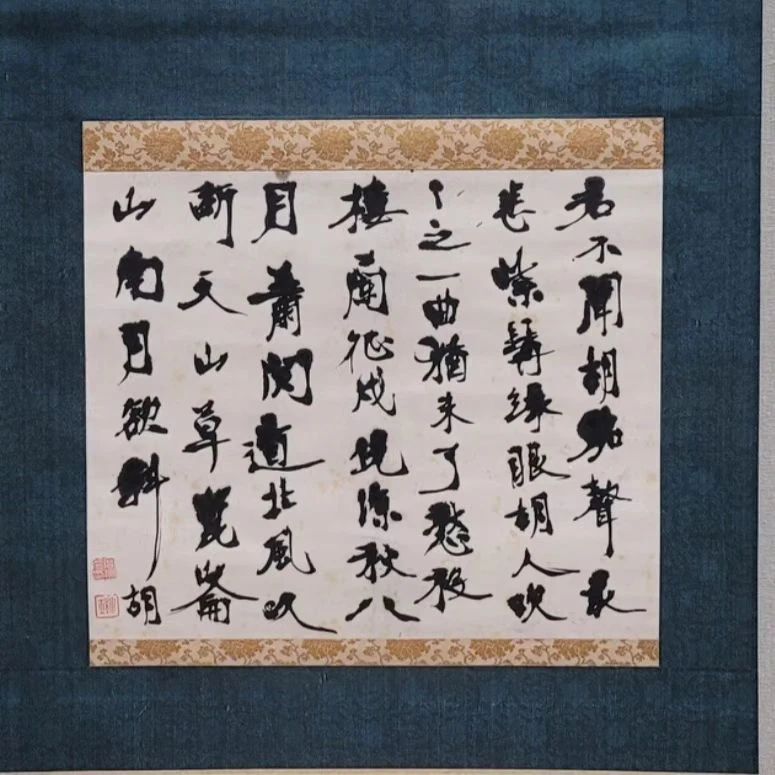 君不聞胡笳聲最
悲紫髯緑眼胡人吹
〻之一曲猶未了愁殺
樓蘭征戍児涼秋八
月蕭関道北風吹
断天山草崑崙
山南月欲斜胡